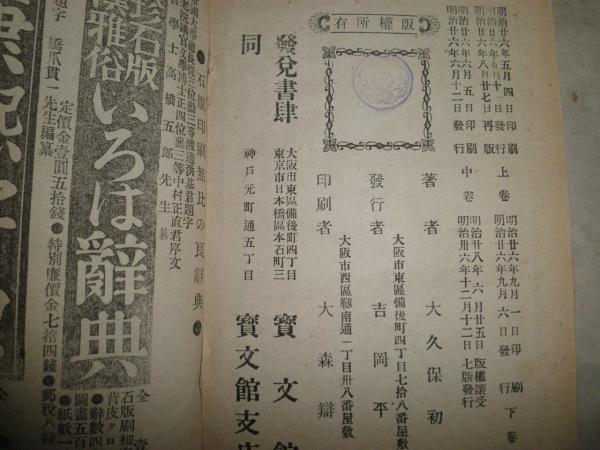 明治廿六年五月四日印刷
明治廿六年五月十一日發行
明治廿六年八月廿七日再版
明治廿六年六月五日印刷
明治廿六年六月十二日發行
上卷
中卷
明治廿六年九月一日印刷
明治廿六年九月六日發行
下卷
明治廿八年六月廿五日版權讓受
明治卅六年十二月十二日七版發行
版權所有
著者 大久保初
大阪市東區備後町四丁目七拾八番屋敷
發行者 吉岡平
大阪市西區靱南通一丁目卅八番屋敷
印刷者 大森辯
發兌書肆
大阪市東區備後町四丁目
東京市日本橋區本石町三
寶文館
同
神戸元町通五丁目
寶文館支店
石版印刷無比の良辭典
正四位勳三等中村正直君序文
文學士高橋五郎先生
石版
漢雅俗いろは辭典
定價金壹圓五拾錢
特別廉價金七拾四錢
郵稅八錢
全壹
石版刷細
背皮クロ
辭數四
圖畫五百
紙數一
橋爪貫一先生編纂
全